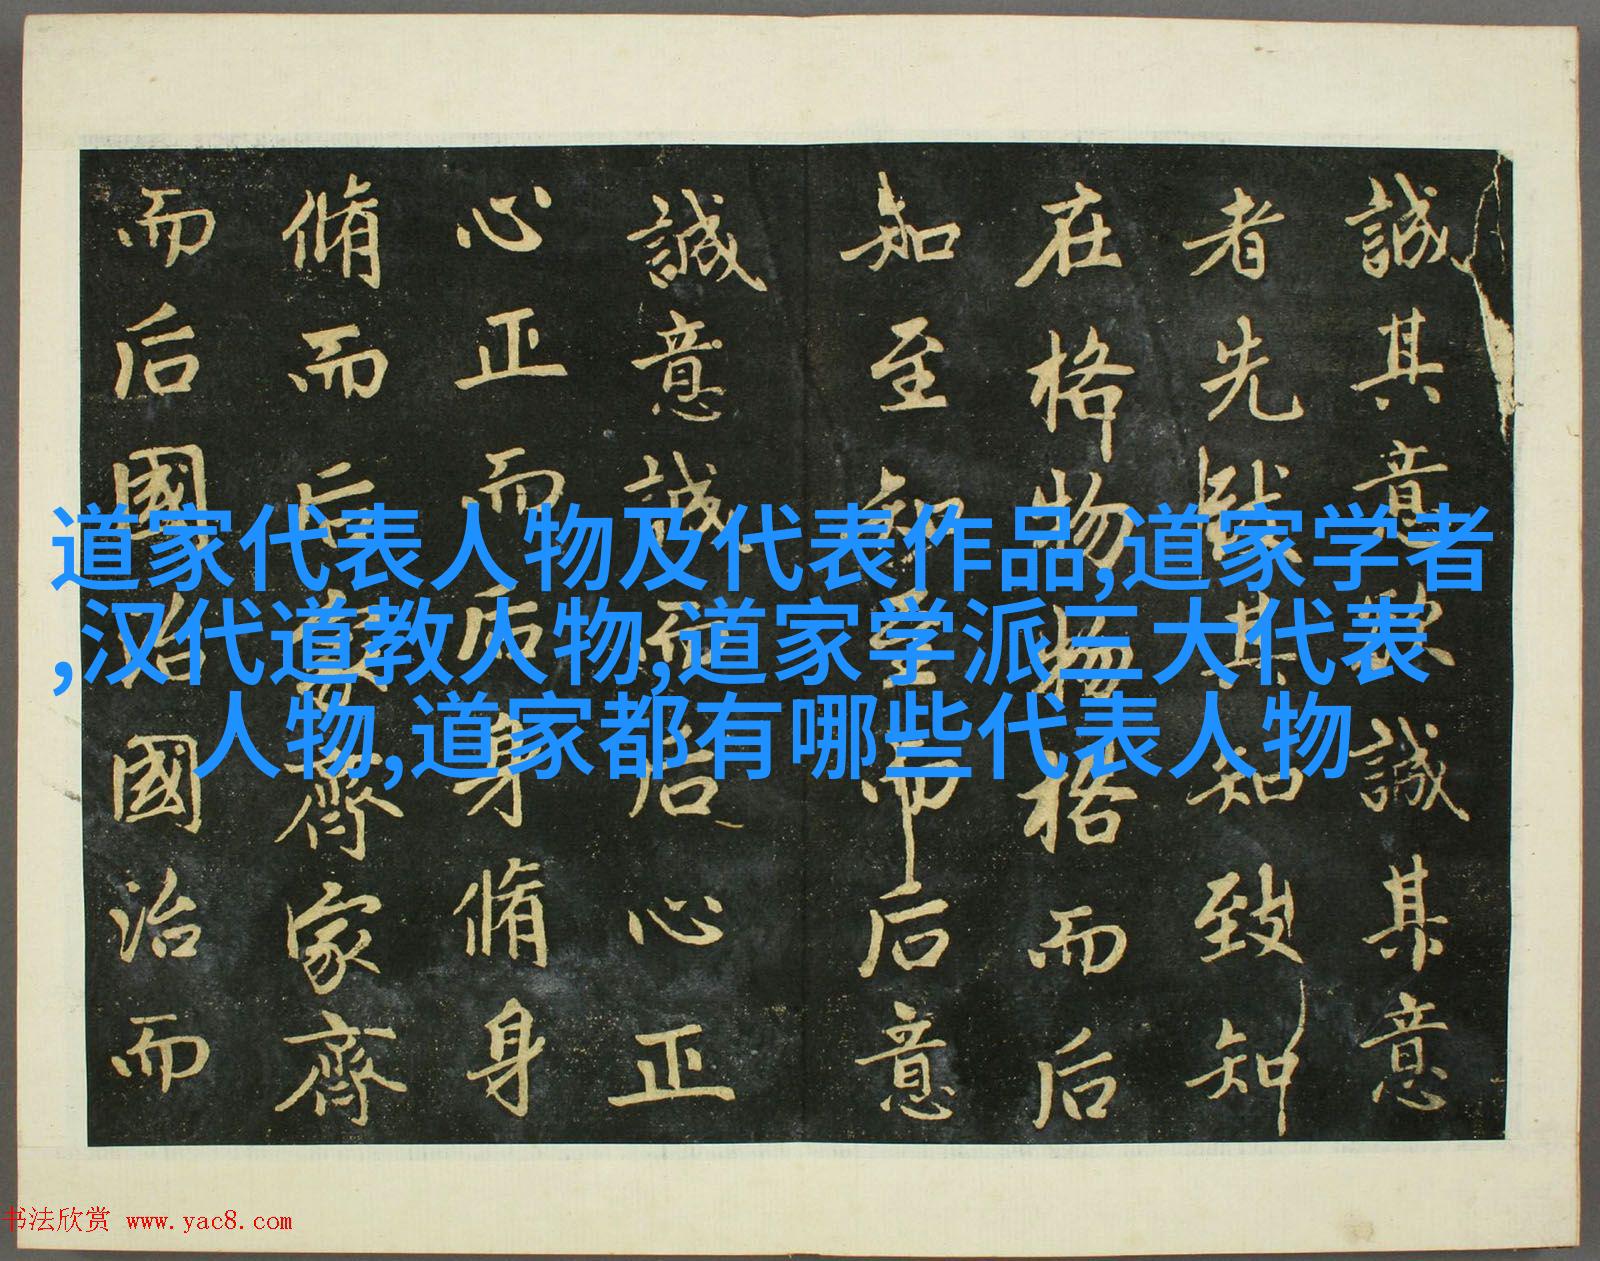 誠其意欲誠其意
者先致其知致知
在格物物格而后
知至知至而后意
誠意誠而后心正
心正而后身脩身
脩而后家齊家齊
而后國治國治而
道家代表人物及代表作品,道家学者
,汉代道教人物,道家学派三大代表
人物,道家都有哪些代表人物
书法欣赏 www.yac8.com